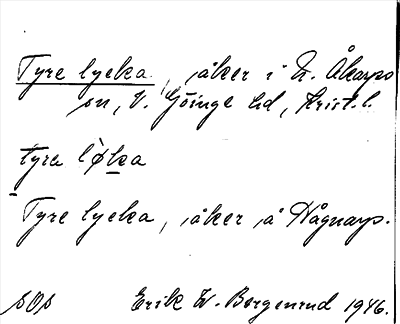 Tyre lycka, åker i N. Åkarps
sn, V. Göinge hd, Krist. l.
tyra lø̀ka
Tyre lycka, åker å Hågnarp.
SOS Erik W. Borgenrud 1946.